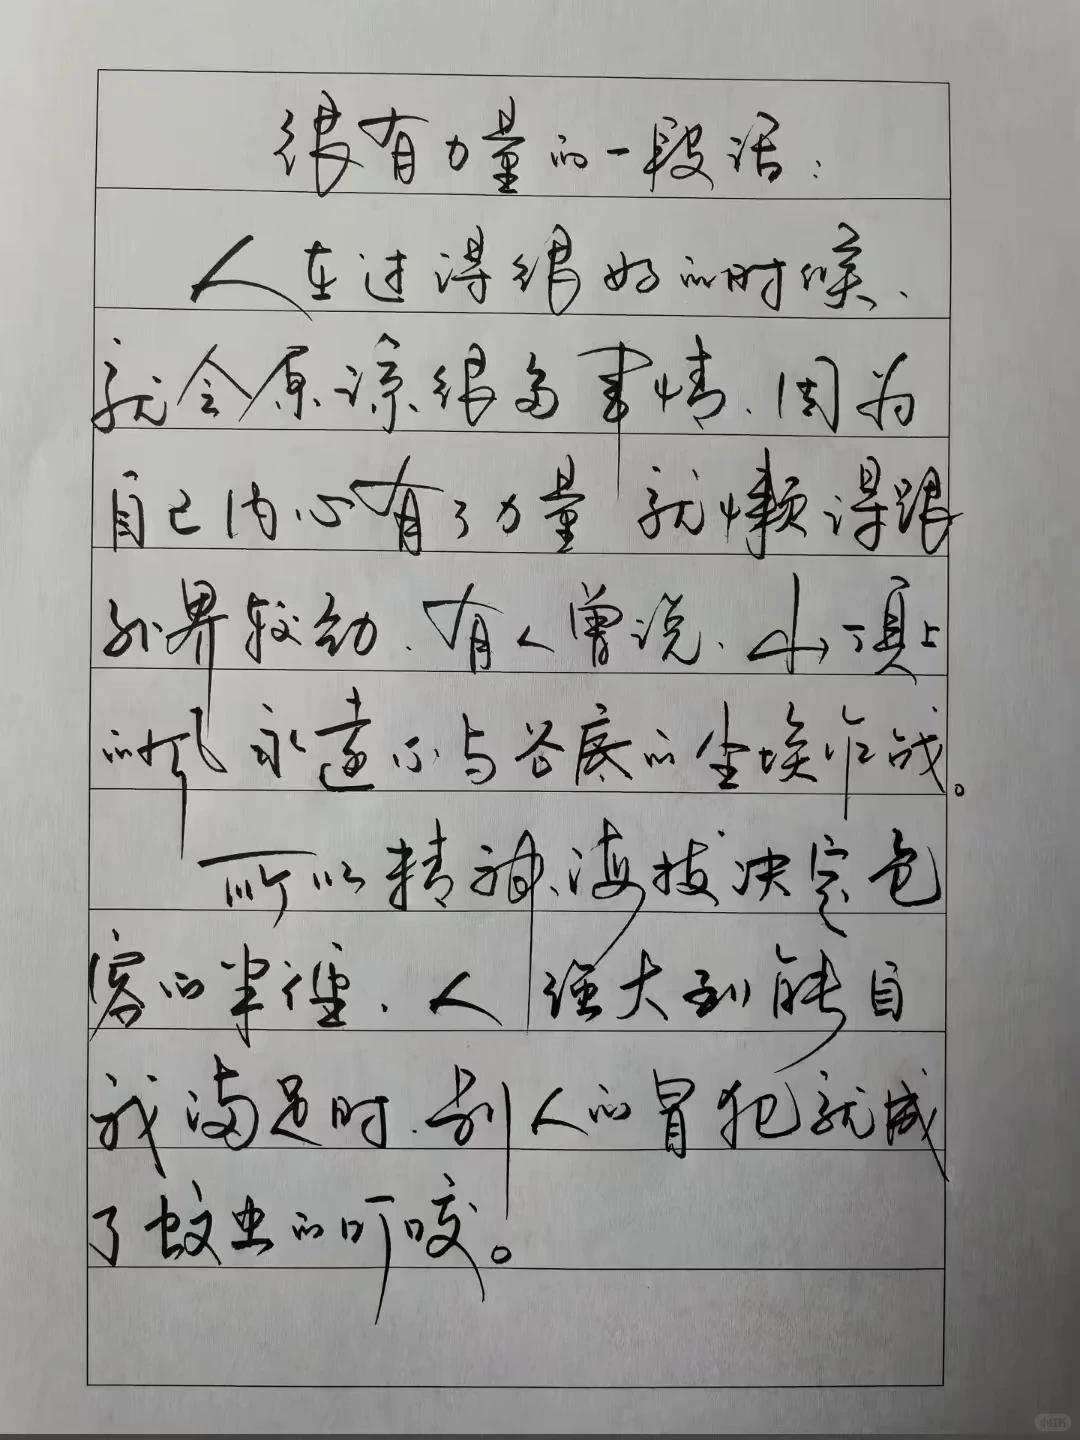 很有力量的一段话：
人在过得很好的时候、
就会原谅很多事情、因为
自己内心有了力量 就懒得跟
外界较劲、有人曾说、山顶上
的风永远不与谷底的尘埃作战。
所以精神海拔决定包
容的半径、人强大到能自
我满足时、别人的冒犯就成
了蚊虫的叮咬。
小红书